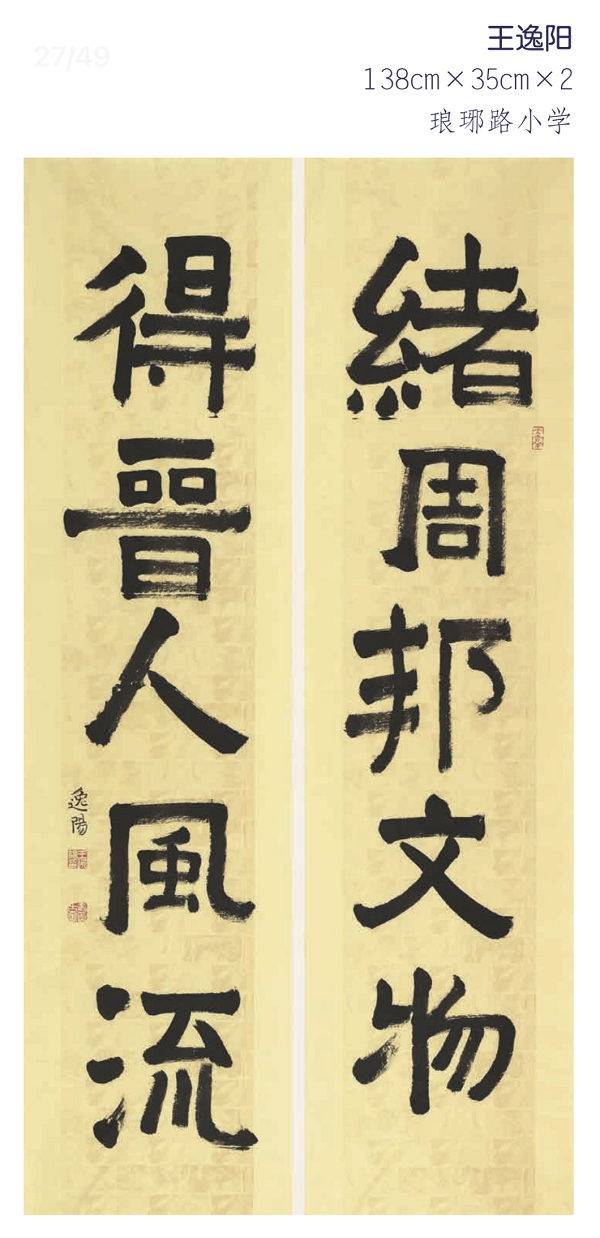 27/49
王逸阳
138cm×35cm×2
琅琊路小学
緒周邦文物
得晉人風流
逸陽